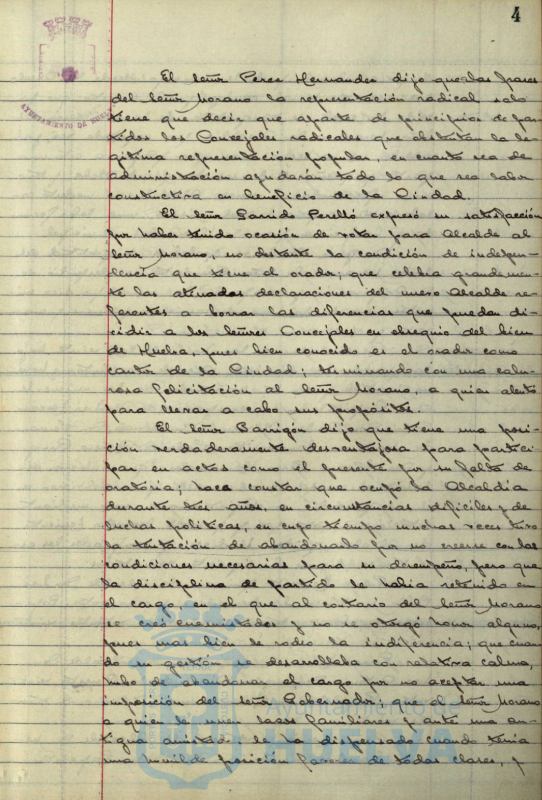 4
AYUNTAMIENTO DE
El señor Perez Hernandez dijo que tras frases
del señor Morano la representación radical solo
tiene que decir que aparte de principios de par-
tidos los Concejales radicales que ostentan la le-
gitima representación popular, en cuanto sea de
administración ayudarán todo lo que sea labor
constructiva en beneficio de la Ciudad.
El señor Garrido Perelló expresó su satisfacción
por haber tenido ocasión de votar para Alcalde al
señor Morano, no obstante la condición de indepen-
dencia que tiene el orador; que celebra grandemen-
te las atinadas declaraciones del nuevo Alcalde re-
ferentes a borrar las diferencias que puedan di-
vidir a los señores Concejales en obsequio del bien
de Huelva, pues bien conocido es el orador como
cantor de la Ciudad; terminando con una calu-
rosa felicitación al señor Morano, a quien alentó
para llevar a cabo sus propósitos.
El señor Barrigón dijo que tiene una posi-
ción verdaderamente desventajosa para partici-
par en actos como el presente por su falta de
oratoria; hace constar que ocupó la Alcaldia
durante tres años, en circunstancias dificiles y de
luchas politicas, en cuyo tiempo muchas veces tuvo
la tentación de abandonarlo por no creerse con las
condiciones necesarias para su desempeño, pero que
la disciplina de partido le habia retenido en
el cargo, en el que al contrario del señor Morano
se creó enemistades y no se otorgó honor alguno,
pues mas bien le rodeó la indiferencia; que cuan-
do su gestión se desarrollaba con relativa calma,
hubo de abandonar el cargo por no aceptar una
imposición del señor Gobernador; que el señor Morano
a quien le unen lazos familiares y ante una an-
tigua amistad le ha dispensado cuando tenia
una humilde posición favores de todas clases, y
Ayuntamiento de
HUELVA